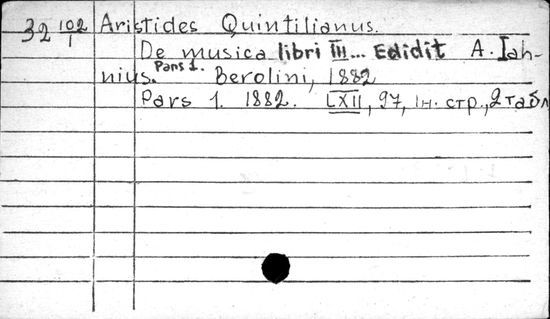 32 102/1 Aristides Quintilianus.
De musica libri III... Edidit A. Iah-
nius. Pars 1. Berolini, 1882
Pars 1. 1882. LXII, 97, Iн. стр., 2 табл